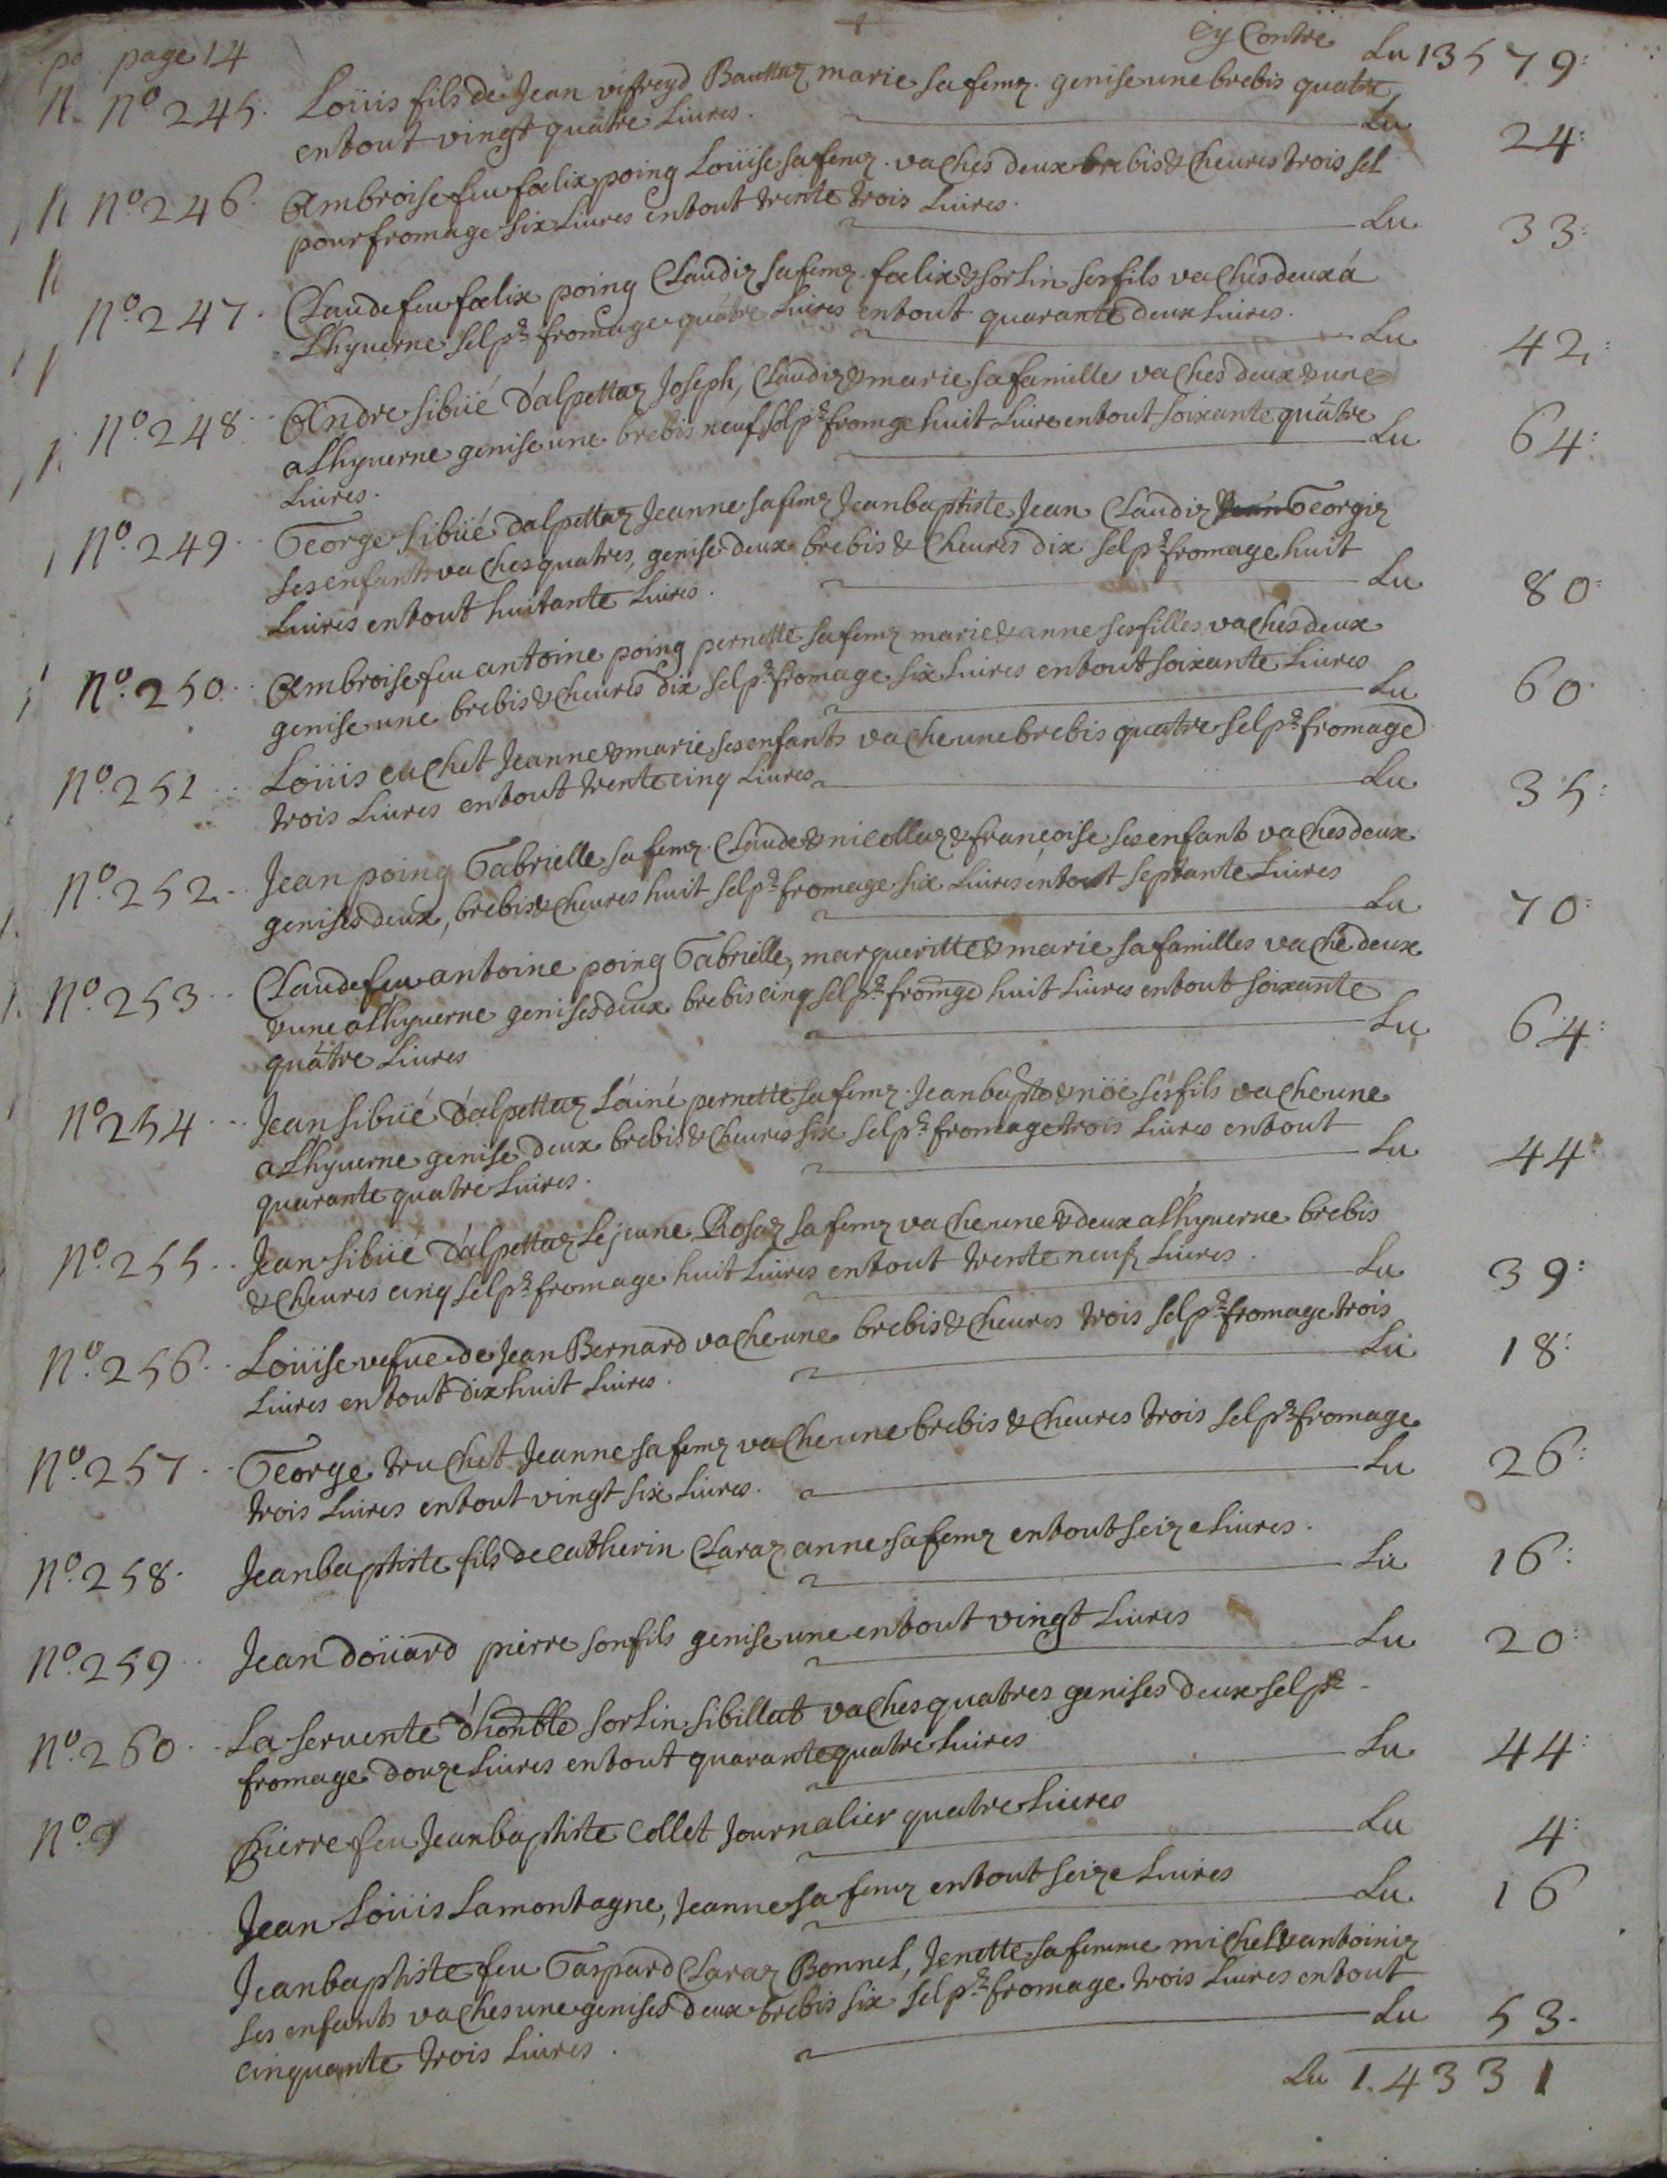 page 14 Cy Contre Lu 13579:
N.º 245. Loüis fils de Jean vifreyd Bauttaz marie sa femȝ. genise une brebis quatre
en tout vingt quatre Liures. Lu 24:
N.º 246. Ambroise feu fœlix poing Loüise sa femȝ. vaches deux brebis & cheures trois sel
pour fromage six Liures en tout trente trois Liures. Lu 33:
N.º 247. Claude feu fœlix poing Claudiȝ sa femȝ. fœlix & sorlin ses fils vaches deux á
Lhyuerne sel pr fromage quatre Liures en tout quarante deux Liures. Lu 42:
N.º 248. Andre sibüé d'alpettaz Joseph, Claudiȝ & marie sa familles vaches deux & une
a Lhyuerne genise une brebis neuf sel pr fromge huit Liure en tout soixante quatre Lu 64:
Liures.
N.º 249. George sibüé dalpettaz Jeanne sa femȝ Jeanbaptiste Jean Claudiȝ Jean Georgiȝ
ses enfants vaches quatres, genise deux brebis & Cheures dix sel pr fromage huit
Liures en tout huitante Liures. Lu 80:
N.º 250. Ambroise feu antoine poing pernette sa femȝ marie & anne ses filles vaches deux
genise une brebis & cheures dix sel pr fromage six Liures en tout soixante Liures Lu 60.
N.º 251. Loüis cuchet Jeanne & marie ses enfants vache une brebis quatre sel pr fromage
trois Liures en tout trente cinq Liures Lu 35:
N.º 252. Jean poing Gabrielle sa femȝ. Claude & nicollaz & francoise ses enfants vaches deux
genises deux, brebis & cheures huit sel pr fromage six Liures en tout septante Liures Lu 70:
N.º 253. Claude feu antoine poing Gabrielle, margueritte & marie sa familles vache deux
& une a Lhyuerne genises deux brebis cinq sel pr fromge huit Liures en tout soixante
quatre Liures Lu 64:
N.º 254. Jean sibüé d'alpettaz L'áiné pernette sa femȝ. Jeanbapte & nöé ses fils vache une
a Lhyuerne genise deux brebis & Cheures six sel pr fromage trois Liures en tout
quarante quatre Liures. Lu 44:
N.º 255. Jean sibüé d'alpettaz Le jeune Rosaz sa femȝ vache une & deux a Lhyuerne brebis
& Cheures cinq sel pr fromage huit Liures en tout trente neuf Liures. Lu 39:
N.º 256. Loüise vefue de Jean Bernard vache une brebis & Cheures trois sel pr fromage trois
Liures en tout dix huit Liures. Lu 18:
N.º 257. George truchet Jeanne sa femȝ vache une brebis & cheures trois sel pr fromage
trois Liures en tout vingt six Liures. Lu 26:
N.º 258. Jeanbaptiste fils de catherin Claraz anne sa femȝ en tout seize Liures. Lu 16:
N.º 259. Jean doüard pierre son fils genise une en tout vingt Liures Lu 20:
N.º 260. La seruente d'honble sorlin sibillut vaches quatres genises deux sel pr
fromage douze Liures en tout quarante quatre Liures Lu 44:
N.º Pierre feu Jeanbaptiste Collet Journalier quatre Liures Lu 4:
Jean Loüis Lamontagne, Jeanne sa femȝ en tout seize Liures Lu 16
Jeanbaptiste feu Gaspard Claraz Bonnel, Jenette sa femme michel & antoiniȝ
ses enfants vaches une genises deux brebis six sel pr fromage trois Liures en tout
cinquante trois Liures. Lu 53.
Lu 1.4331